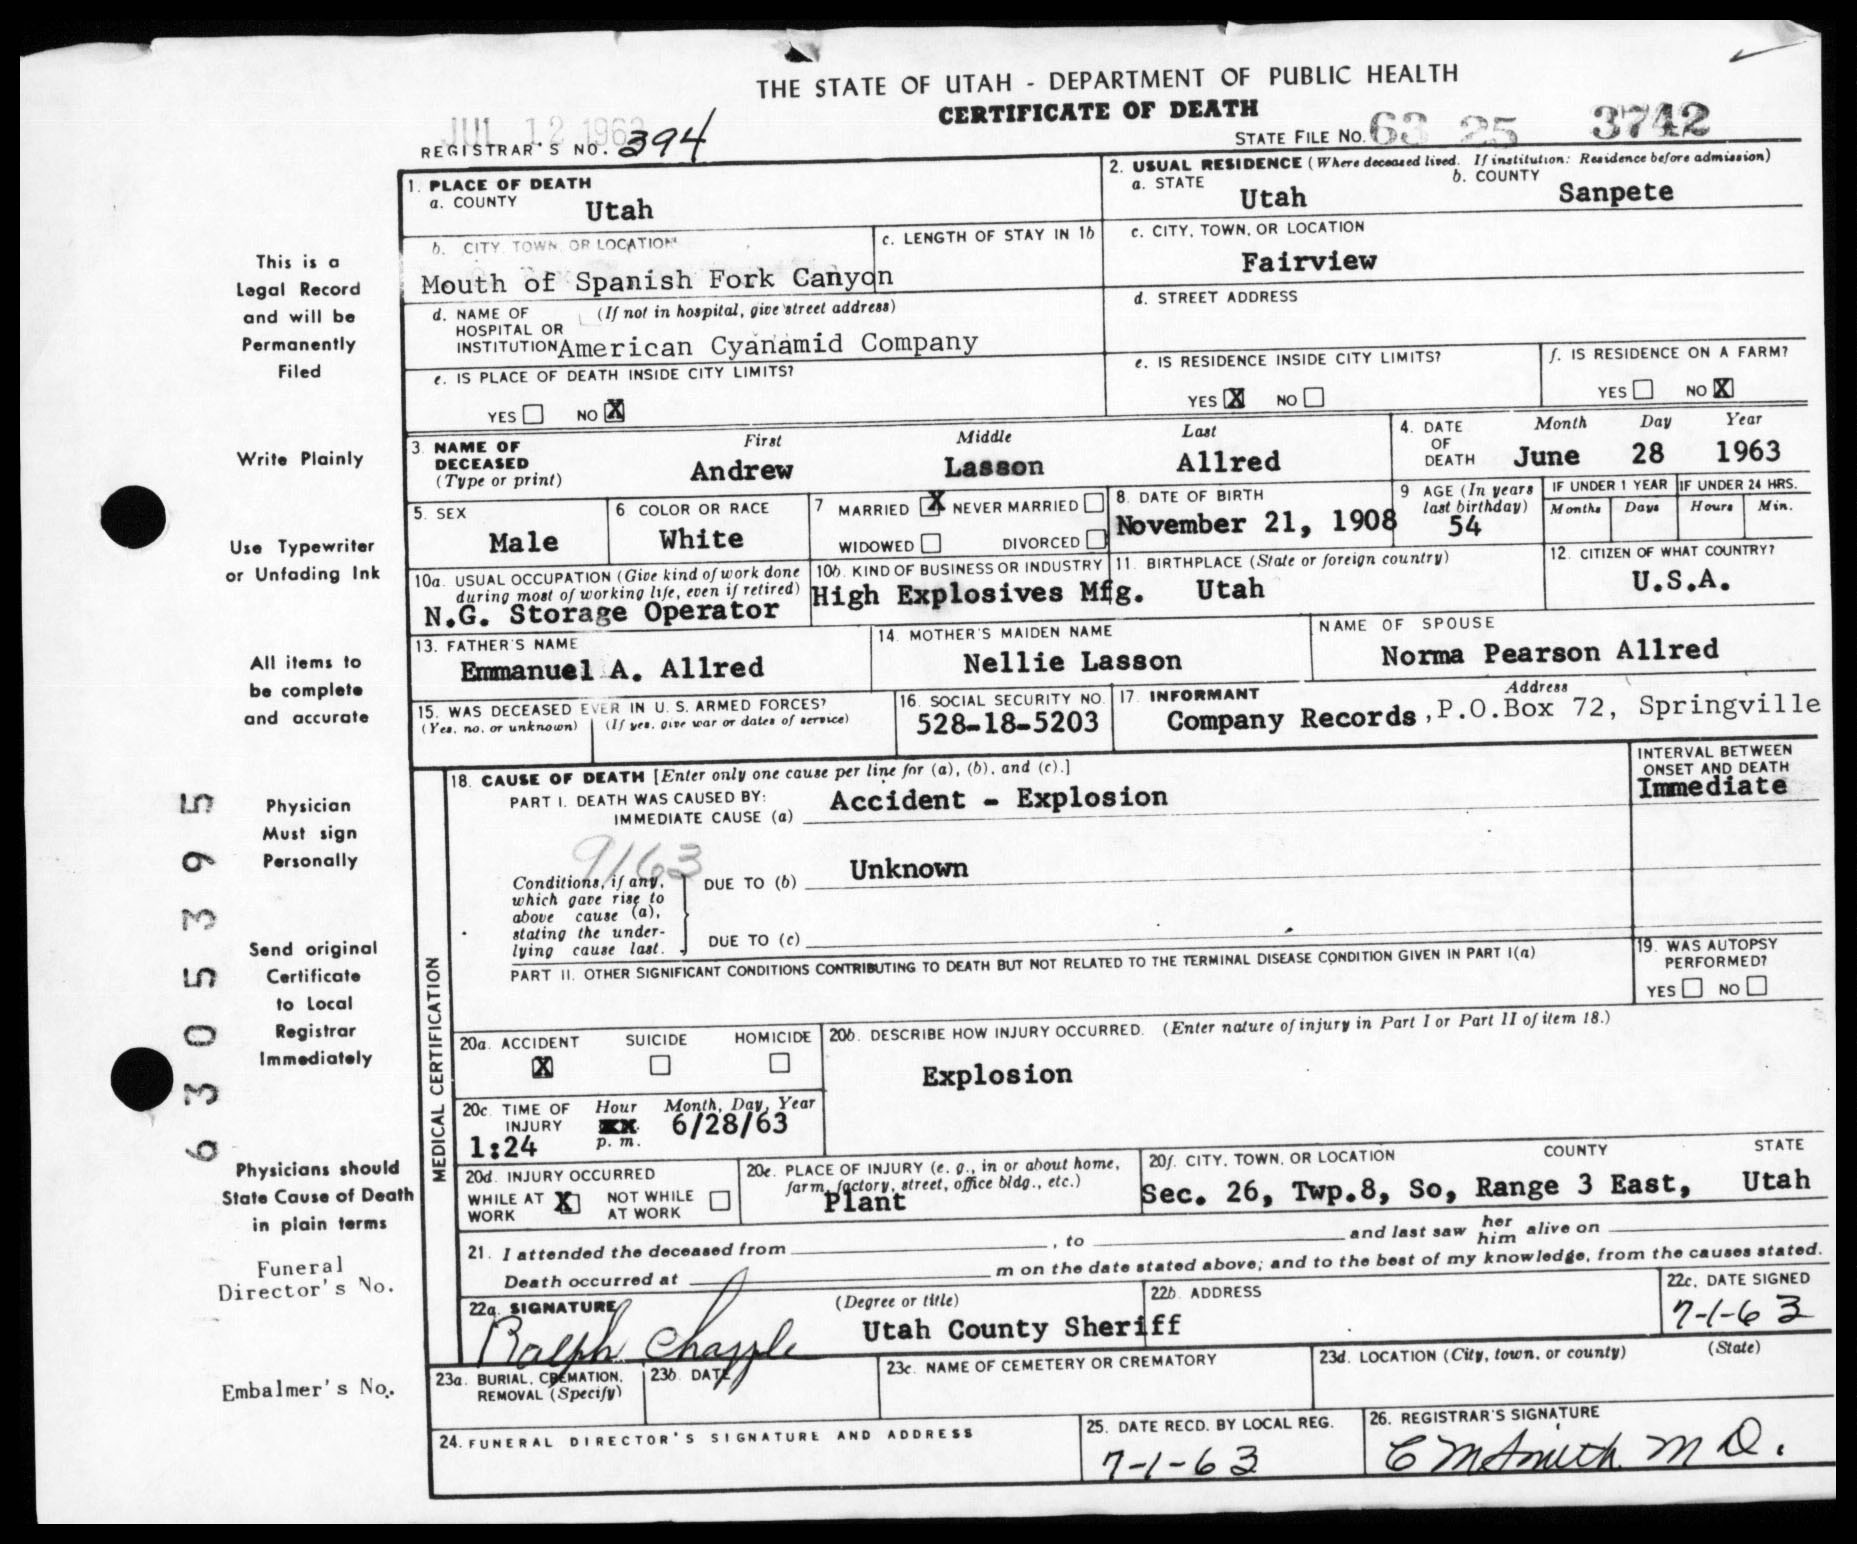 THE STATE OF UTAH - DEPARTMENT OF PUBLIC HEALTH
CERTIFICATE OF DEATH
JUL 12 1963
REGISTRAR'S NO. 394
STATE FILE NO. 63 25 3742
1. PLACE OF DEATH
a. COUNTY Utah
2. USUAL RESIDENCE (Where deceased lived. If institution: Residence before admission)
a. STATE Utah b. COUNTY Sanpete
b. CITY, TOWN, OR LOCATION
Mouth of Spanish Fork Canyon
c. LENGTH OF STAY IN 1b
c. CITY, TOWN, OR LOCATION
Fairview
d. NAME OF HOSPITAL OR INSTITUTION (If not in hospital, give street address)
American Cyanamid Company
d. STREET ADDRESS
e. IS PLACE OF DEATH INSIDE CITY LIMITS?
YES NO X
e. IS RESIDENCE INSIDE CITY LIMITS?
YES X NO
f. IS RESIDENCE ON A FARM?
YES NO X
3. NAME OF DECEASED (Type or print)
First Middle Last
Andrew Lasson Allred
4. DATE OF DEATH
Month Day Year
June 28 1963
5. SEX
Male
6 COLOR OR RACE
White
7 MARRIED X NEVER MARRIED
WIDOWED DIVORCED
8. DATE OF BIRTH
November 21, 1908
9 AGE (In years last birthday)
54
IF UNDER 1 YEAR
Months Days
IF UNDER 24 HRS.
Hours Min.
10a. USUAL OCCUPATION (Give kind of work done during most of working life, even if retired)
N.G. Storage Operator
10b. KIND OF BUSINESS OR INDUSTRY
High Explosives Mfg.
11. BIRTHPLACE (State or foreign country)
Utah
12. CITIZEN OF WHAT COUNTRY?
U.S.A.
13. FATHER'S NAME
Emmanuel A. Allred
14. MOTHER'S MAIDEN NAME
Nellie Lasson
NAME OF SPOUSE
Norma Pearson Allred
15. WAS DECEASED EVER IN U.S. ARMED FORCES?
(Yes, no, or unknown) (If yes, give war or dates of service)
16. SOCIAL SECURITY NO.
528-18-5203
17. INFORMANT Address
Company Records, P.O.Box 72, Springville
MEDICAL CERTIFICATION
18. CAUSE OF DEATH [Enter only one cause per line for (a), (b), and (c).]
PART I. DEATH WAS CAUSED BY:
IMMEDIATE CAUSE (a) Accident - Explosion
INTERVAL BETWEEN ONSET AND DEATH
Immediate
9163
Conditions, if any, which gave rise to above cause (a), stating the underlying cause last.
DUE TO (b) Unknown
DUE TO (c)
PART II. OTHER SIGNIFICANT CONDITIONS CONTRIBUTING TO DEATH BUT NOT RELATED TO THE TERMINAL DISEASE CONDITION GIVEN IN PART I(a)
19. WAS AUTOPSY PERFORMED?
YES NO
20a. ACCIDENT SUICIDE HOMICIDE
X
20b. DESCRIBE HOW INJURY OCCURRED. (Enter nature of injury in Part I or Part II of item 18.)
Explosion
20c. TIME OF INJURY Hour Month, Day, Year
1:24 p.m. 6/28/63
20d. INJURY OCCURRED
WHILE AT WORK X NOT WHILE AT WORK
20e. PLACE OF INJURY (e. g., in or about home, farm, factory, street, office bldg., etc.)
Plant
20f. CITY, TOWN, OR LOCATION COUNTY STATE
Sec. 26, Twp.8, So, Range 3 East, Utah
21. I attended the deceased from , to and last saw her him alive on
Death occurred at m on the date stated above; and to the best of my knowledge, from the causes stated.
22a. SIGNATURE (Degree or title)
Ralph Chapple Utah County Sheriff
22b. ADDRESS
22c. DATE SIGNED
7-1-63
23a. BURIAL, CREMATION, REMOVAL (Specify)
23b. DATE
23c. NAME OF CEMETERY OR CREMATORY
23d. LOCATION (City, town, or county) (State)
24. FUNERAL DIRECTOR'S SIGNATURE AND ADDRESS
25. DATE RECD. BY LOCAL REG.
7-1-63
26. REGISTRAR'S SIGNATURE
C M Smith M D.
This is a
Legal Record
and will be
Permanently
Filed
Write Plainly
Use Typewriter
or Unfading Ink
All items to
be complete
and accurate
Physician
Must sign
Personally
Send original
Certificate
to Local
Registrar
Immediately
Physicians should
State Cause of Death
in plain terms
Funeral
Director's No.
Embalmer's No.
63053395